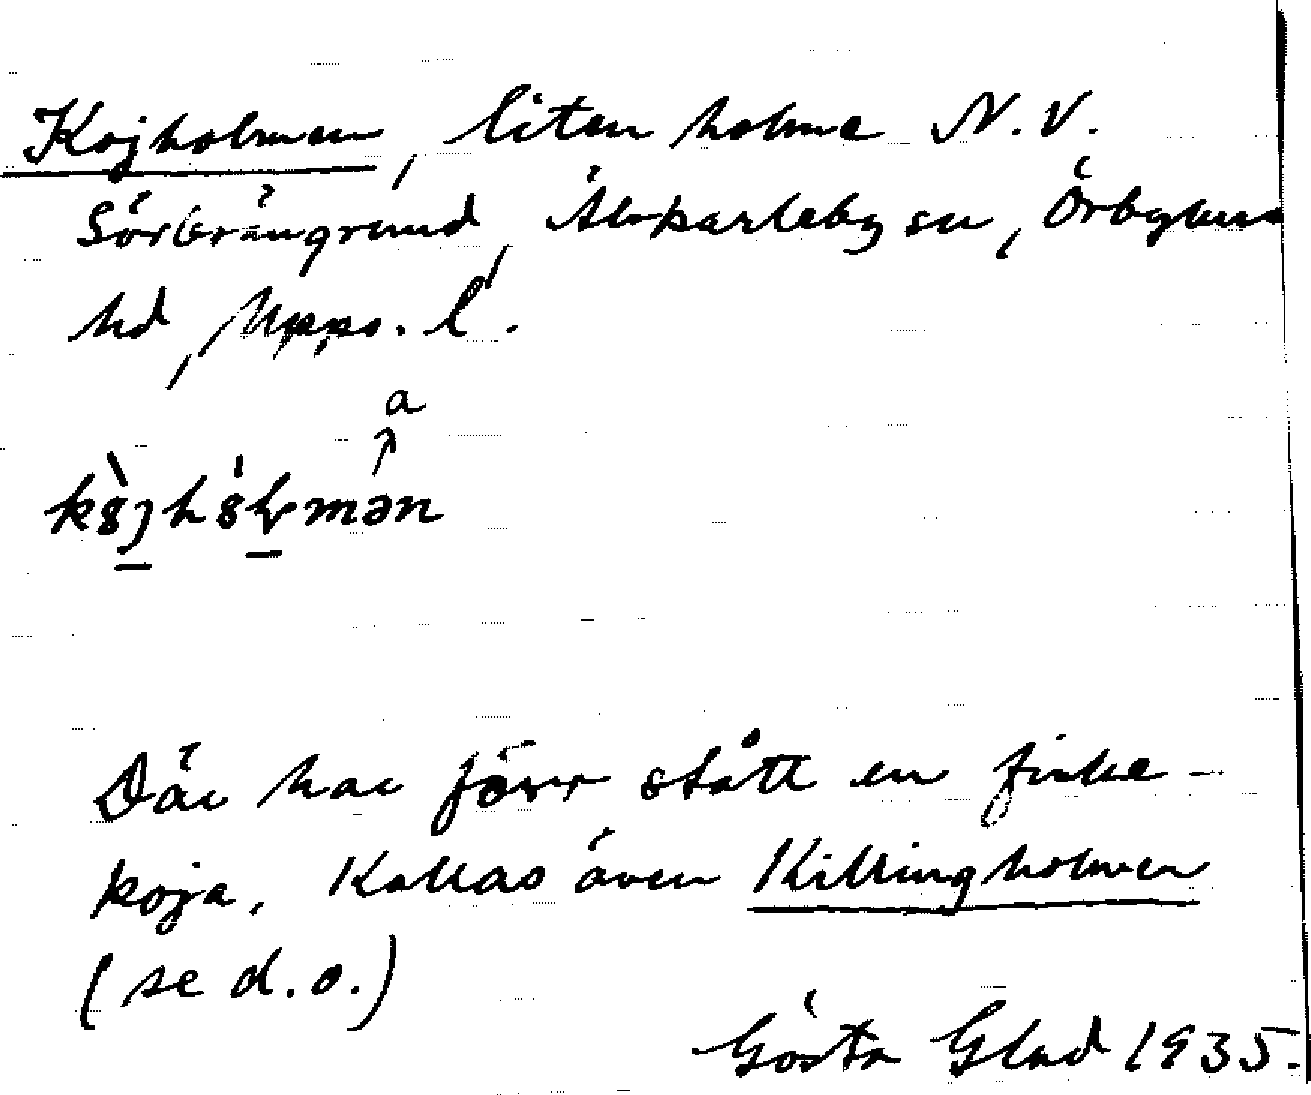 Kojholmen, liten holme N.V.
Sörbrängrund, Älvkarleby sn, Örbyhus
hd, Upps. l.
a
Där har förr stått en fiske-
koja. Kallas även Killingholmen
(se d.o.)
Gösta Glad 1935.